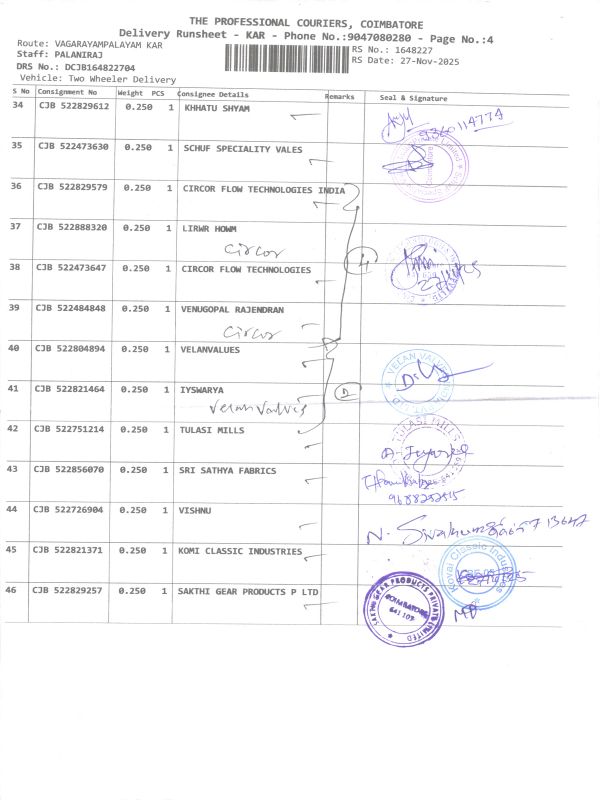 THE PROFESSIONAL COURIERS, COIMBATORE
Delivery Runsheet - KAR - Phone No.:9047080280 - Page No.:4
Route: VAGARAYAMPALAYAM KAR
RS No.: 1648227
Staff: PALANIRAJ
RS Date: 27-Nov-2025
DRS No.: DCJB164822704
Vehicle: Two Wheeler Delivery
S No Consignment No Weight PCS Consignee Details Remarks Seal & Signature
34 CJB 522829612 0.250 1 KHHATU SHYAM
9360114774
35 CJB 522473630 0.250 1 SCHUF SPECIALITY VALES
36 CJB 522829579 0.250 1 CIRCOR FLOW TECHNOLOGIES INDIA
37 CJB 522888320 0.250 1 LIRWR HOWM
Circor
4
38 CJB 522473647 0.250 1 CIRCOR FLOW TECHNOLOGIES
39 CJB 522484848 0.250 1 VENUGOPAL RAJENDRAN
Circor
40 CJB 522804894 0.250 1 VELANVALUES
41 CJB 522821464 0.250 1 IYSWARYA
Velan Valves
42 CJB 522751214 0.250 1 TULASI MILLS
TULASI MILLS
43 CJB 522856070 0.250 1 SRI SATHYA FABRICS
44 CJB 522726904 0.250 1 VISHNU
45 CJB 522821371 0.250 1 KOMI CLASSIC INDUSTRIES
Kovai Classic Industries
46 CJB 522829257 0.250 1 SAKTHI GEAR PRODUCTS P LTD
SAKTHI GEAR PRODUCTS PRIVATE LIMITED
COIMBATORE
641 107